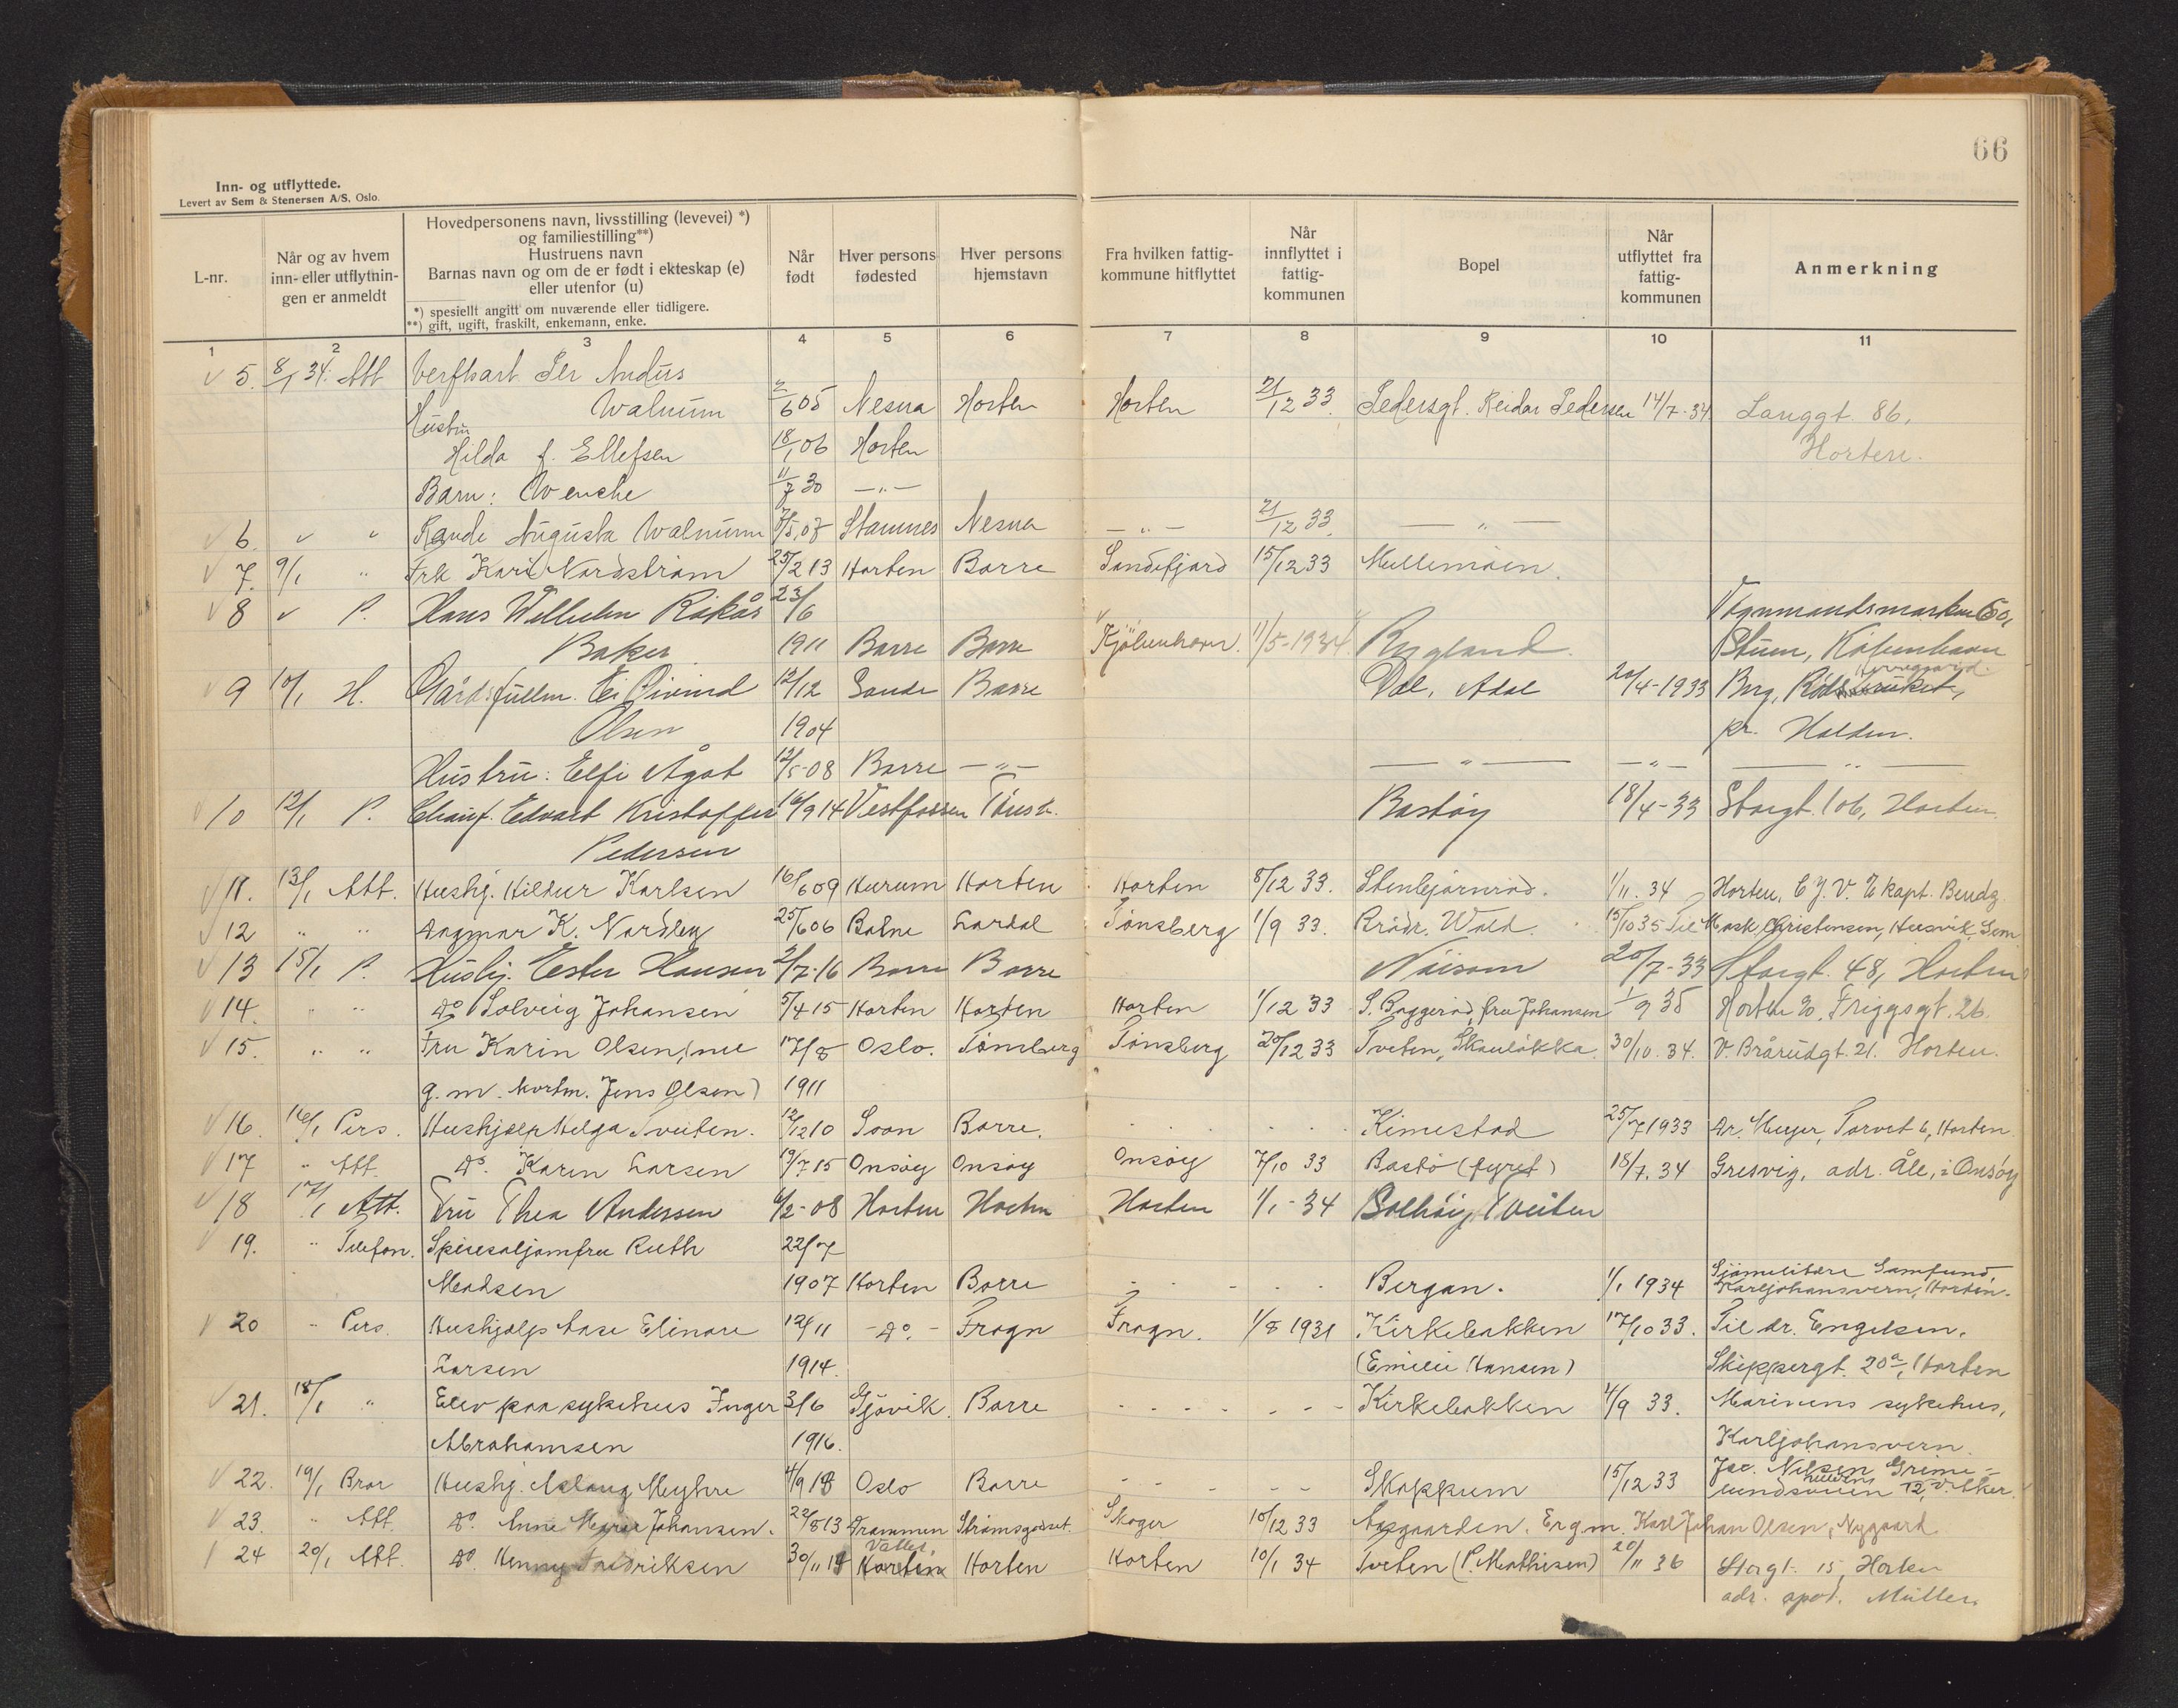 66
Inn- og utflyttede.
Levert av Sem & Stenersen A/S. Oslo.
L-nr. Når og av hvem inn- eller utflytningen er anmeldt Hovedpersonens navn, livsstilling (levevei) *) og familiestilling**) Hustruens navn Barnas navn og om de er født i ekteskap (e) eller utenfor (u) *) spesiellt angitt om nuværende eller tidligere. **) gift, ugift, fraskilt, enkemann, enke. Når født Hver persons fødested Hver persons hjemstavn Fra hvilken fattigkommune hitflyttet Når innflyttet i fattigkommunen Bopel Når utflyttet fra fattigkommunen Anmerkning
1 2 3 4 5 6 7 8 9 10 11
5. 8/1 34. Att. Verftsarb. Per Andûs
Walnum 2/6 05 Nesna Horten Horten 21/12 33. Pedersgt. Reidar Pedersen 14/7-34 Langgt. 86,
Hustru
Hilda f. Ellefsen 18/1 06 Horten Horten.
Barn: Wenche 11/7 30 — " —
6. " " Rande Augusta Walnum Stamnes Nesna — " — 21/12 33. — " —
7. 9/1 " Frk Kari Nordstrøm 25/2 13 Horten Borre Sandefjord 15/12 33 Mellemøien.
8 " P. Hans Wilhelm Råkås 23/6 60,
Baker 1911 Borre Borre Kjøbenhavn. 11/5-1934 Rygland. København
9 10/1 H. Gårdsfullm. Øivind 12/12 Sande Borre Dal, Adal 20/4-1933 Berg,
Olsen 1904 pr. Halden.
Hustru: Elfi Ågot 12/5-08 Borre — " — — " — — " — — " —
10 12/1 P. Chauf. Edvart Kristoffer 16/9 14 Vestfossen Tønsb. Bastøy 18/4-33 Storgt. 106, Horten.
Pedersen
11. 13/1 Att. Hushj. Hildur Karlsen 16/6 09 Hurum Horten Horten 8/12 33. Stenbjørnrød. 1/11. 34 Horten, C. J. V. kapt. Bendz.
12 " " Dagmar K. Nordby 25/6 06 Botne Lardal Tønsberg 1/9 33. Brødr. Wold. 15/10 35 Til Mask. Christensen, Husvik, Sem
13 15/1 P. Hushj. Ester Hansen 2/7-16 Borre Borre Nøisom 20/7-33 Storgt. 48, Horten
14. " " Do Solveig Johansen 5/4 15 Horten Horten Horten 1/12 33 S. Baggerød, fru Johansen 1/9 35 Horten Friggsgt. 26.
15. " " Fru Karin Olsen, (nu 17/8 Oslo. Tønsberg Tønsberg 20/12 33 Tveten, Skauløkka. 30/10. 34. V. Brårudgt. 21. Horten.
g. m. Jens Olsen) 1911
16. 16/1 Pers. Hushjælp Helga Tveiten. 12/12 10 Soon Borre. Kimestad 25/7 1933 Dr. Meyer, Torvet 6, Horten.
17 " Att. Do. Karin Larsen 19/7 15 Onsøy Onsøy Onsøy 7/10 33 Bastø (fyret) 18/7. 34 Gresvig, adr. Åle, i Onsøy
18 17/1 Att. Fru Thea Andersen 6/2-08 Horten Horten Horten 1/1-34 Solhøi, Tveiten
19. " Telefon. Spisesaljomfru Ruth 22/7
Madsen 1907 Horten Borre Bergan. 1/1 1934 Sjømilitære Samfund, Karljohansvern, Horten.
20 " Pers. Hushjælp Aase Elinore 12/11 - Do. - Frogn Frogn. 1/8 1931 Kirkebakken 17/10 33. Til dr. Engelsen.
Larsen 1914. (Emilie Hansen) Skippergt. 20a, Horten
21. 18/1 " Elev paa sykehus Inger 3/6 Gjøvik. Borre Kirkebakken 4/9 33. Marinens sykehus,
Abrahamsen 1916. Karljohansvern.
22. 19/1 Bror Hushj. Aslaug Myhre 4/9 18 Oslo Borre Skoppum 15/12 33 Nilsen Grimelundsveien 12, V. Aker.
23. " Att. Do. Anne Marie Johansen. 22/8 13 Drammen Strømsgodset. Skoger 10/12 33 Aasgaarden. Er g.m. Karl Johan Olsen, Nygaard
24 20/1 Att. Do. Henny Fredriksen 30/11 Horten Horten Horten 10/1 34 Tveten (P. Mathisen) 20/11 36 Storgt. 15, Horten
adr. apot. Müller.